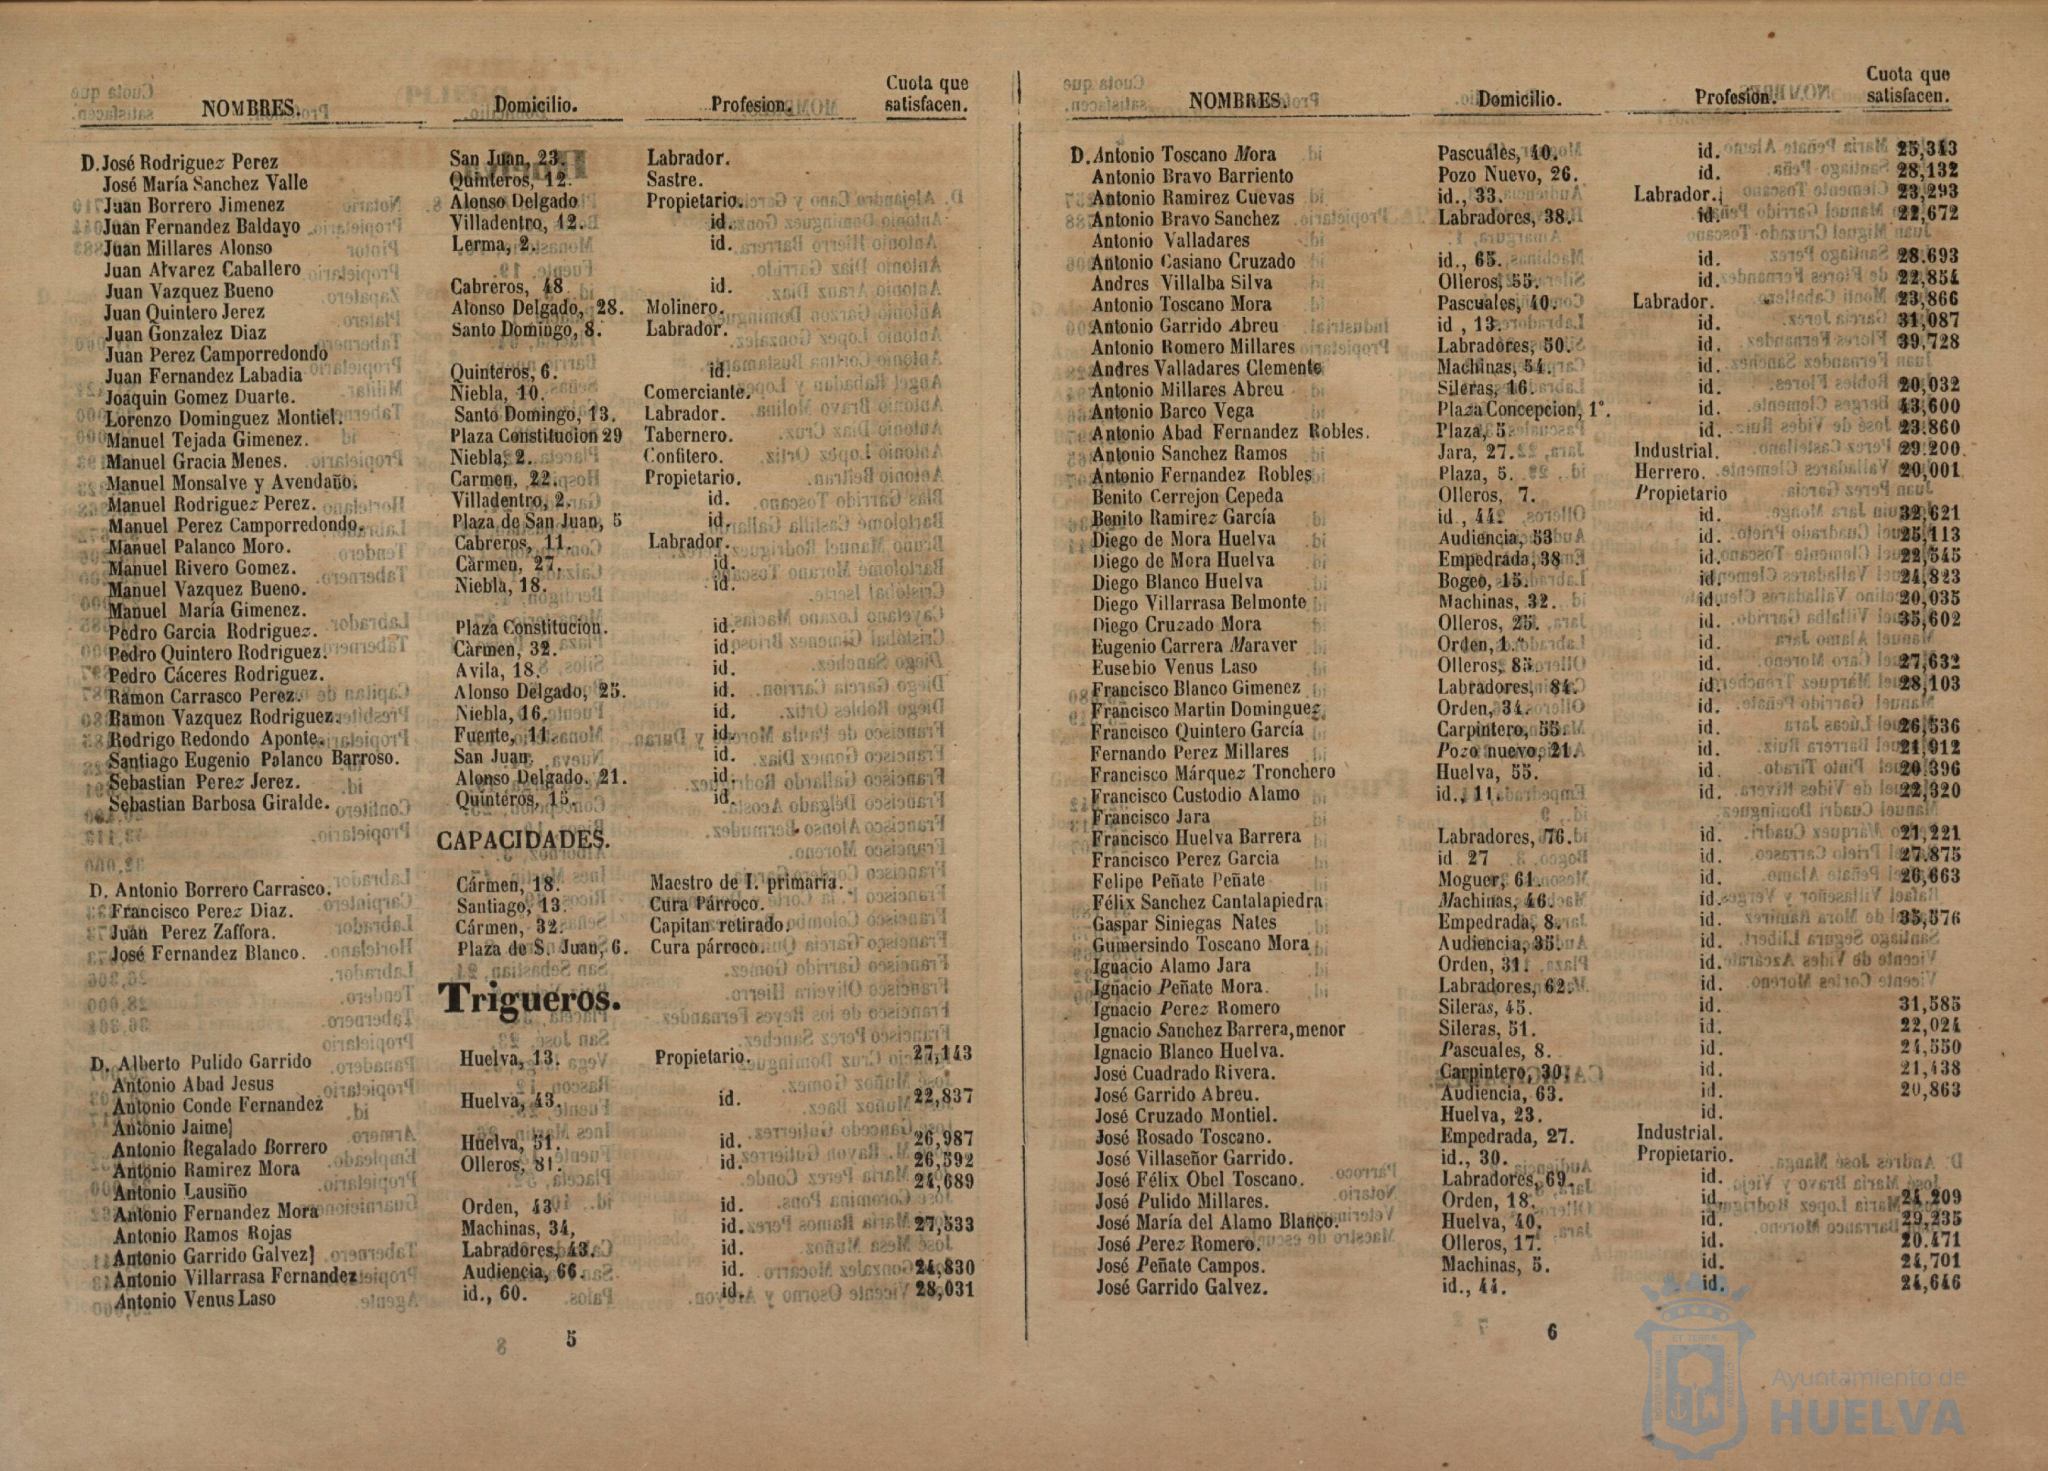 NOMBRES. Domicilio. Profesion. Cuota que satisfacen.
D. José Rodriguez Perez San Juan, 23. Labrador.
José María Sanchez Valle Quinteros, 12. Sastre.
Juan Borrero Jimenez Alonso Delgado Propietario.
Juan Fernandez Baldayo Villadentro, 12. id.
Juan Millares Alonso Lerma, 2. id.
Juan Alvarez Caballero
Juan Vazquez Bueno Cabreros, 48 id.
Juan Quintero Jerez Alonso Delgado, 28. Molinero.
Juan Gonzalez Diaz Santo Domingo, 8. Labrador.
Juan Perez Camporredondo
Juan Fernandez Labadia Quinteros, 6. id.
Joaquin Gomez Duarte. Niebla, 10. Comerciante.
Lorenzo Dominguez Montiel. Santo Domingo, 13. Labrador.
Manuel Tejada Gimenez. Plaza Constitucion 29 Tabernero.
Manuel Gracia Menes. Niebla, 2. Confitero.
Manuel Monsalve y Avendaño. Carmen, 22. Propietario.
Manuel Rodriguez Perez. Villadentro, 2. id.
Manuel Perez Camporredondo. Plaza de San Juan, 5 id.
Manuel Palanco Moro. Cabreros, 11. Labrador.
Manuel Rivero Gomez. Cármen, 27. id.
Manuel Vazquez Bueno. Niebla, 18. id.
Manuel María Gimenez.
Pedro Garcia Rodriguez. Plaza Constitucion. id.
Pedro Quintero Rodriguez. Cármen, 32. id.
Pedro Cáceres Rodriguez. Avila, 18. id.
Ramon Carrasco Perez. Alonso Delgado, 25. id.
Ramon Vazquez Rodriguez. Niebla, 16. id.
Rodrigo Redondo Aponte. Fuente, 11. id.
Santiago Eugenio Palanco Barroso. San Juan. id.
Sebastian Perez Jerez. Alonso Delgado, 21. id.
Sebastian Barbosa Giralde. Quinteros, 15. id.
CAPACIDADES.
D. Antonio Borrero Carrasco. Cármen, 18. Maestro de I. primaria.
Francisco Perez Diaz. Santiago, 13. Cura Párroco.
Juan Perez Zaffora. Cármen, 32. Capitan retirado.
José Fernandez Blanco. Plaza de S. Juan, 6. Cura párroco.
Trigueros.
D. Alberto Pulido Garrido Huelva, 13. Propietario. 27,143
Antonio Abad Jesus
Antonio Conde Fernandez Huelva, 43. id. 22,837
Antonio Jaime
Antonio Regalado Borrero Huelva, 51. id. 26,987
Antonio Ramirez Mora Olleros, 81. id. 26,592
Antonio Lausiño 24,689
Antonio Fernandez Mora Orden, 43 id.
Antonio Ramos Rojas Machinas, 34, id. 27,533
Antonio Garrido Galvez Labradores, 43. id.
Antonio Villarrasa Fernandez Audiencia, 66. id. 24,830
Antonio Venus Laso id., 60. id. 28,031
5
NOMBRES. Domicilio. Profesion. Cuota que satisfacen.
D. Antonio Toscano Mora Pascuales, 40. id. 25,343
Antonio Bravo Barriento Pozo Nuevo, 26. id. 28,132
Antonio Ramirez Cuevas id., 33. Labrador. 23,293
Antonio Bravo Sanchez Labradores, 38. id. 22,672
Antonio Valladares
Antonio Casiano Cruzado id., 65. id. 28.693
Andres Villalba Silva Olleros, 55. id. 22,854
Antonio Toscano Mora Pascuales, 40. Labrador. 23,866
Antonio Garrido Abreu id , 13. id. 31,087
Antonio Romero Millares Labradores, 50. id. 39,728
Andres Valladares Clemente Machinas, 54. id.
Antonio Millares Abreu Sileras, 16. id. 20,032
Antonio Barco Vega Plaza Concepcion, 1°. id. 43,600
Antonio Abad Fernandez Robles. Plaza, 5 id. 23.860
Antonio Sanchez Ramos Jara, 27. Industrial. 29.200
Antonio Fernandez Robles Plaza, 5. Herrero. 20,001
Benito Cerrejon Cepeda Olleros, 7. Propietario
Benito Ramirez García id., 44. id. 32,621
Diego de Mora Huelva Audiencia, 53 id. 25,113
Diego de Mora Huelva Empedrada, 38 id. 22,545
Diego Blanco Huelva Bogeo, 15. id. 24,823
Diego Villarrasa Belmonte Machinas, 32. id. 20,035
Diego Cruzado Mora Olleros, 25. id. 35,602
Eugenio Carrera Maraver Orden, 1.° id.
Eusebio Venus Laso Olleros, 85. id. 27,632
Francisco Blanco Gimenez Labradores, 84. id. 28,103
Francisco Martin Dominguez Orden, 34. id.
Francisco Quintero García Carpintero, 55. id. 26,536
Fernando Perez Millares Pozo nuevo, 21. id. 21,912
Francisco Márquez Tronchero Huelva, 55. id. 20.396
Francisco Custodio Alamo id., 11. id. 22,320
Francisco Jara
Francisco Huelva Barrera Labradores, 76. id. 21,221
Francisco Perez Garcia id 27 id. 27.875
Felipe Peñate Peñate Moguer, 61. id. 26,663
Félix Sanchez Cantalapiedra Machinas, 46. id.
Gaspar Siniegas Nates Empedrada, 8. id. 35,576
Gumersindo Toscano Mora Audiencia, 35. id.
Ignacio Alamo Jara Orden, 31. id.
Ignacio Peñate Mora. Labradores, 62. id.
Ignacio Perez Romero Sileras, 45. id. 31,585
Ignacio Sanchez Barrera, menor Sileras, 51. id. 22,024
Ignacio Blanco Huelva. Pascuales, 8. id. 24,550
José Cuadrado Rivera. Carpintero, 30. id. 21,438
José Garrido Abreu. Audiencia, 63. id. 20,863
José Cruzado Montiel. Huelva, 23. id.
José Rosado Toscano. Empedrada, 27. Industrial.
José Villaseñor Garrido. id., 30. Propietario.
José Félix Obel Toscano. Labradores, 69. id.
José Pulido Millares. Orden, 18. id. 24,209
José María del Alamo Blanco. Huelva, 40. id. 29,235
José Perez Romero. Olleros, 17. id. 20.471
José Peñate Campos. Machinas, 5. id. 24,701
José Garrido Galvez. id., 44. id. 24,646
6
Ayuntamiento de
HUELVA